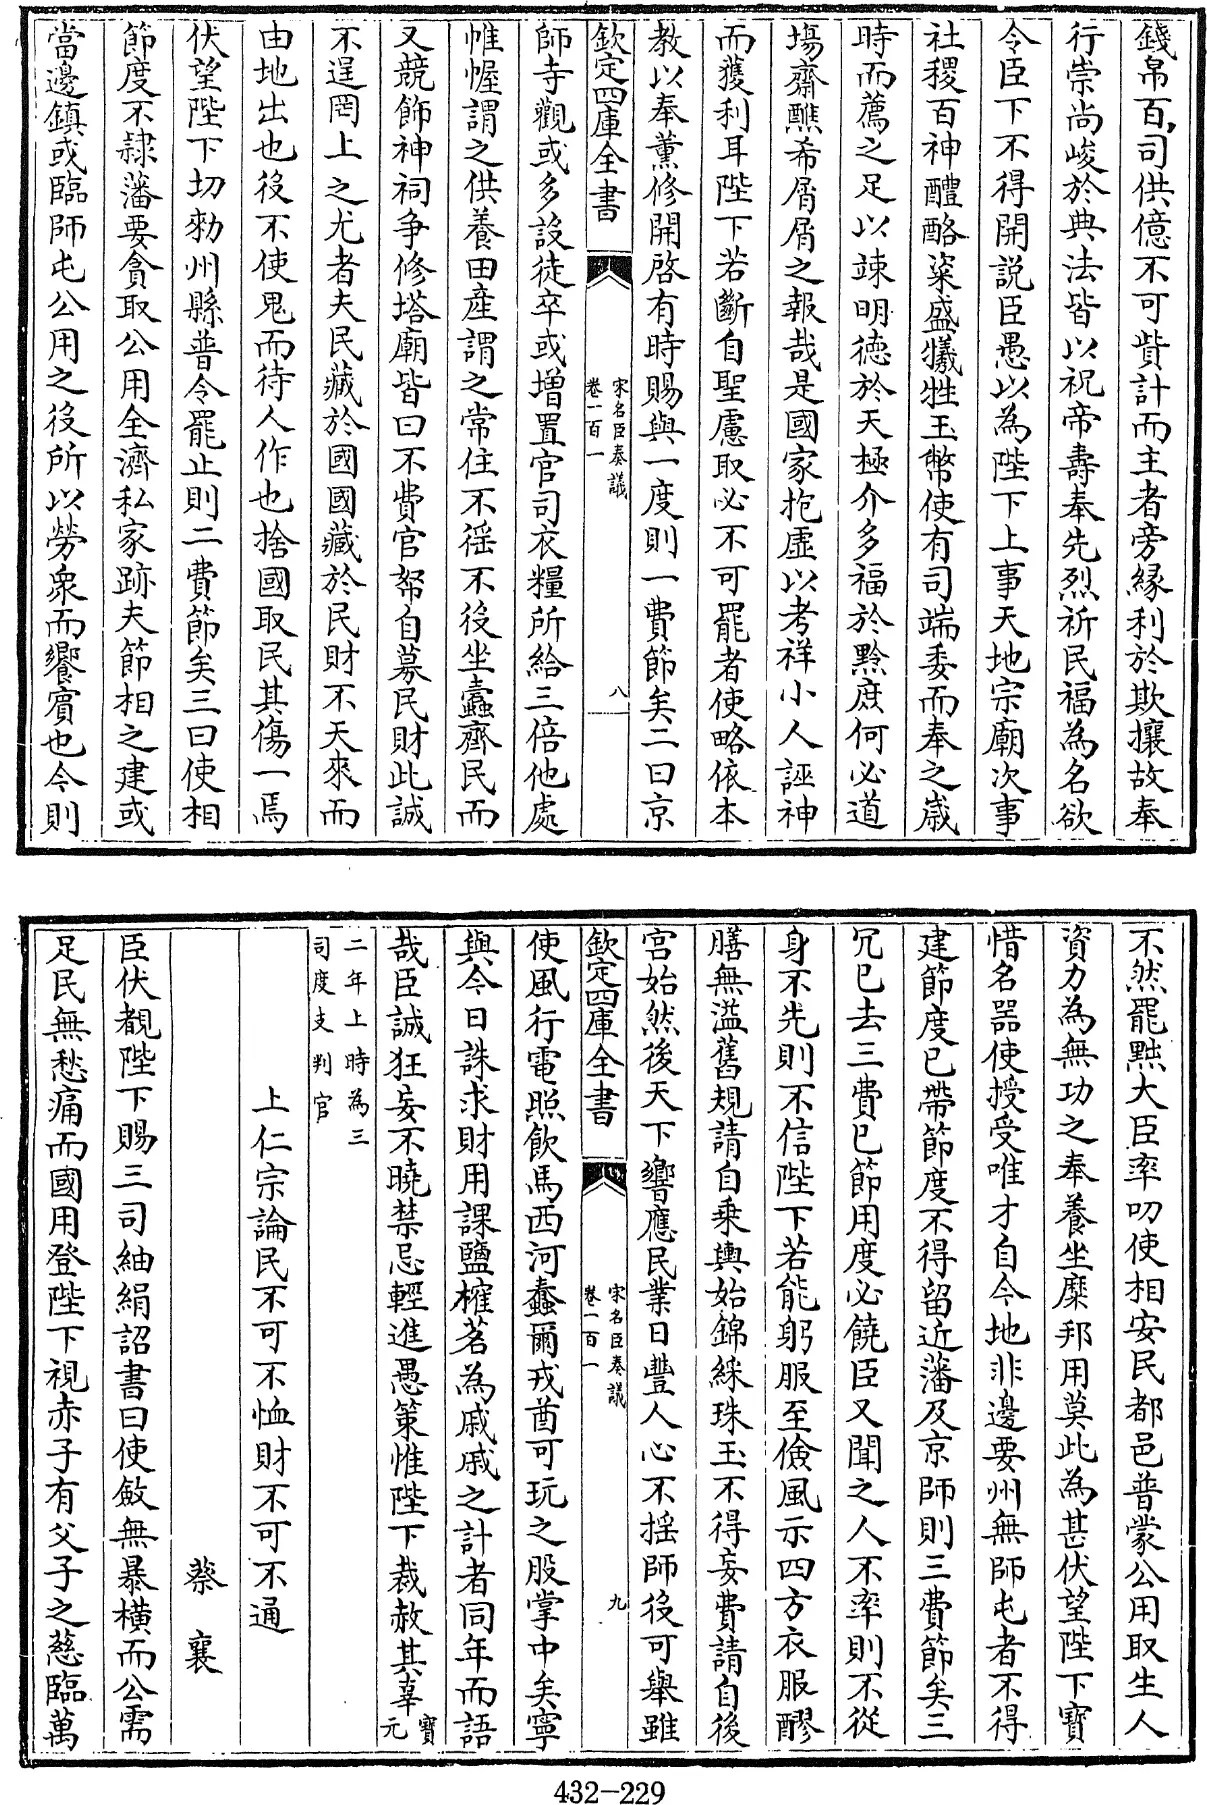 錢帛百司供億不可貲計而主者旁緣利於欺攘故奉
行崇尚峻於典法皆以祝帝壽奉先烈祈民福為名欲
令臣下不得開說臣愚以為陛下上事天地宗廟次事
社稷百神醴酪粢盛犧牲玉幣使有司端委而奉之歲
時而薦之足以竦明德於天極介多福於黔庶何必道
場齋醮希屑屑之報哉是國家抱虛以考祥小人誣神
而獲利耳陛下若斷自聖慮取必不可罷者使略依本
教以奉薰修開啓有時賜與一度則一費節矣二曰京
欽定四庫全書
宋名臣奏議
卷一百一
八
師寺觀或多設徒卒或增置官司衣糧所給三倍他處
帷幄謂之供養田產謂之常住不徭不役坐蠹齊民而
又競飾神祠爭修塔廟皆曰不費官帑自募民財此誠
不逞罔上之尤者夫民藏於國國藏於民財不天來而
由地出也役不使鬼而待人作也捨國取民其傷一焉
伏望陛下切勑州縣普令罷止則二費節矣三曰使相
節度不隸藩要貪取公用全濟私家跡夫節相之建或
當邊鎮或臨師屯公用之役所以勞衆而饗賓也今則
不然罷黜大臣率叨使相安民都邑普蒙公用取生人
資力為無功之奉養坐糜邦用莫此為甚伏望陛下寶
惜名器使授受唯才自今地非邊要州無師屯者不得
建節度已帶節度不得留近藩及京師則三費節矣三
冗已去三費已節用度必饒臣又聞之人不率則不從
身不先則不信陛下若能躬服至儉風示四方衣服醪
膳無溢舊規請自乘輿始錦綵珠玉不得妄費請自後
宮始然後天下響應民業日豐人心不搖師役可舉雖
欽定四庫全書
宋名臣奏議
卷一百一
九
使風行電照飲馬西河蠢爾戎酋可玩之股掌中矣寧
與今日誅求財用課鹽榷茗為戚戚之計者同年而語
哉臣誠狂妄不曉禁忌輕進愚策惟陛下裁赦其辜寶元
二年上時為三
司度支判官
上仁宗論民不可不恤財不可不通
蔡襄
臣伏覩陛下賜三司紬絹詔書曰使斂無暴橫而公需
足民無愁痛而國用登陛下視赤子有父子之慈臨萬
432-229